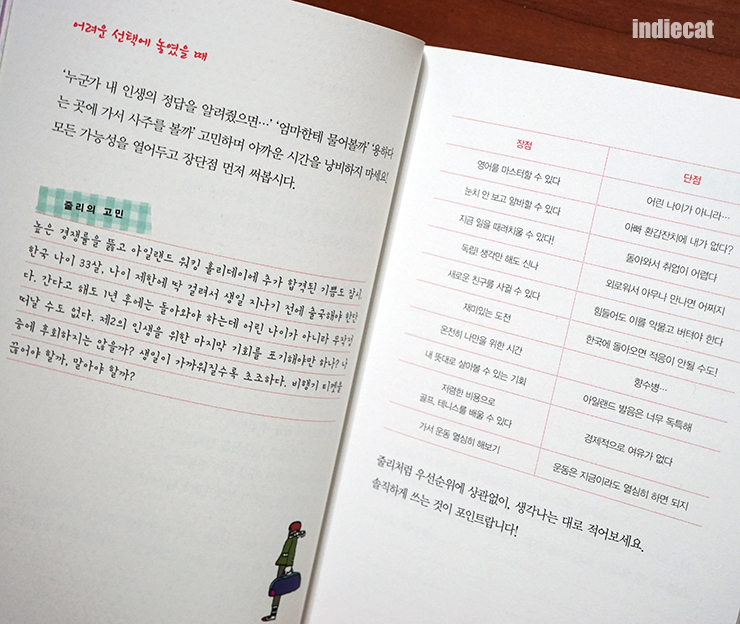 indiecat
어려운 선택에 놓였을 때
'누군가 내 인생의 정답을 알려줬으면…' '엄마한테 물어볼까' '용하다
는 곳에 가서 사주를 볼까' 고민하며 아까운 시간을 낭비하지 마세요!
모든 가능성을 열어두고 장단점 먼저 써봅시다.
줄리의 고민
높은 경쟁률을 뚫고 아일랜드 워킹 홀리데이에 추가 합격된 기쁨도 잠시,
한국 나이 33살, 나이 제한에 딱 걸려서 생일 지나기 전에 출국해야 한단
다. 간다고 해도 1년 후에는 돌아와야 하는데 어린 나이가 아니라 무작정
떠날 수도 없다. 제2의 인생을 위한 마지막 기회를 포기해야만 하나? 나
중에 후회하지는 않을까? 생일이 가까워질수록 초조하다. 비행기 티켓을
끊어야 할까, 말아야 할까?
장점 단점
영어를 마스터할 수 있다 어린 나이가 아니라…
눈치 안 보고 알바할 수 있다 아빠 환갑잔치에 내가 없다?
지금 일을 때려치울 수 있다! 돌아와서 취업이 어렵다
독립! 생각만 해도 신나 외로워서 아무나 만나면 어쩌지
새로운 친구를 사귈 수 있다 힘들어도 이를 악물고 버텨야 한다
재미있는 도전 한국에 돌아오면 적응이 안될 수도!
온전히 나만을 위한 시간 향수병…
내 뜻대로 살아볼 수 있는 기회 아일랜드 발음은 너무 독특해
저렴한 비용으로
골프, 테니스를 배울 수 있다 경제적으로 여유가 없다
가서 운동 열심히 해보기 운동은 지금이라도 열심히 하면 되지
줄리처럼 우선순위에 상관없이, 생각나는 대로 적어보세요.
솔직하게 쓰는 것이 포인트랍니다!